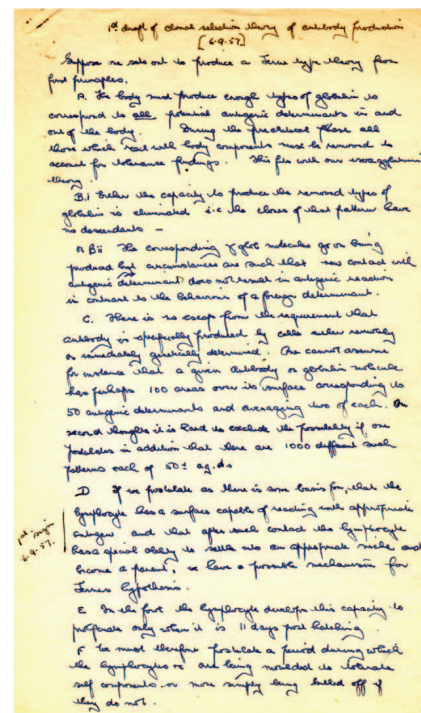 1st draft of clonal selection theory of antibody production
[6.9.57]
Suppose we sets out to produce a Jerne type theory from
first principles.
A. The body must produce enough types of globulin to
correspond to all potential antigenic determinants in and
out of the body. During the prenatal phase all
those which react with body components must be removed to
account for tolerance findings. This fits with our isoagglutinin
theory
B.i Either the capacity to produce the removed types of
globulin is eliminated i.e. the clones of that pattern have
no descendants —
or Bii The corresponding γ glob molecules go on being
produced but circumstances are such that new contact with
antigenic determinant does not result in antigenic reaction
in contrast to the behaviour of a foreign determinant.
C. There is no escape from the requirement that
antibody is specifically produced by cells either remotely
or immediately genetically determined. One cannot assume
for instance that a given antibody or globulin molecule
has perhaps 100 areas over its surface corresponding to
50 antigenic determinants and averaging two of each. On
second thoughts it is hard to exclude the possibility if one
postulates in addition that there are 1000 different such
patterns each of 50± ag. ds
D If we postulate as there is some basis for, that the
lymphocyte has a surface capable of reacting with appropriate
antigen and that after such contact the lymphocyte
has a special ability to settle into an appropriate niche and
become a parent, we have a possible mechanism for
Jernes hypothesis.
6.9.57.
E In the fowl the lymphocyte develops this capacity to
proliferate only when it is 11 days post hatching
F We must therefore postulate a period during which
the lymphocytes or are being moulded to tolerate
self components or more simply being killed off if
they do not.